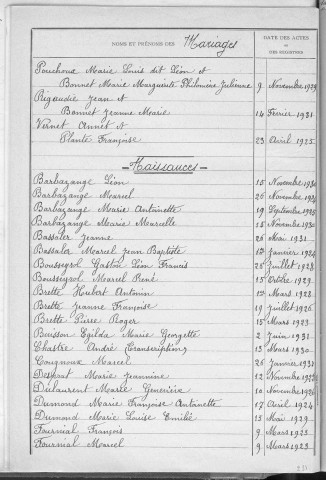 NOMS ET PRÉNOMS DES Mariages
DATE DES ACTES
ou
DES REGISTRES
Pouchoux Marie Louis dit Léon et
Bonnet Marie Marguerite Philomène Julienne 9 Novembre 1929
Rigaudie Jean et
Bonnet Jeanne Marie 14 Février 1931
Vernet Annet et
Plante Françoise 23 Avril 1925
Naissances
Barbazange Léon 15 Novembre
Barbazange Marcel Novembre
Barbazange Marie Antoinette 19 Septembre
Barbazange Marie Marcelle Novembre
Bassaler Jeanne 26 1931
Bassaler Marcel Jean Baptiste Janvier
Bousseyrol Gaston Léon Francis Juillet 1928
Bousseyrol Marcel René 15 1929
Brette Hubert Antonin Mars 1928
Brette Jeanne Françoise 19 Juillet 1926
Brette Pierre Roger 15 Mars 1923
Buisson Egilda Marie Georgette 2 Juin 1931
Chastre André (Transcription) 13 Mars 1930
Marcel 26 Janvier
Marie Jeannine 12 Novembre
Marie Geneviève 10 Novembre
Dumond Marie Françoise Antoinette 17 Avril 1924
Dumond Marie Louise Emilie 13 Mai 1929
Fournial François 9 Mars 1923
Fournial Marcel 9 Mars 1923